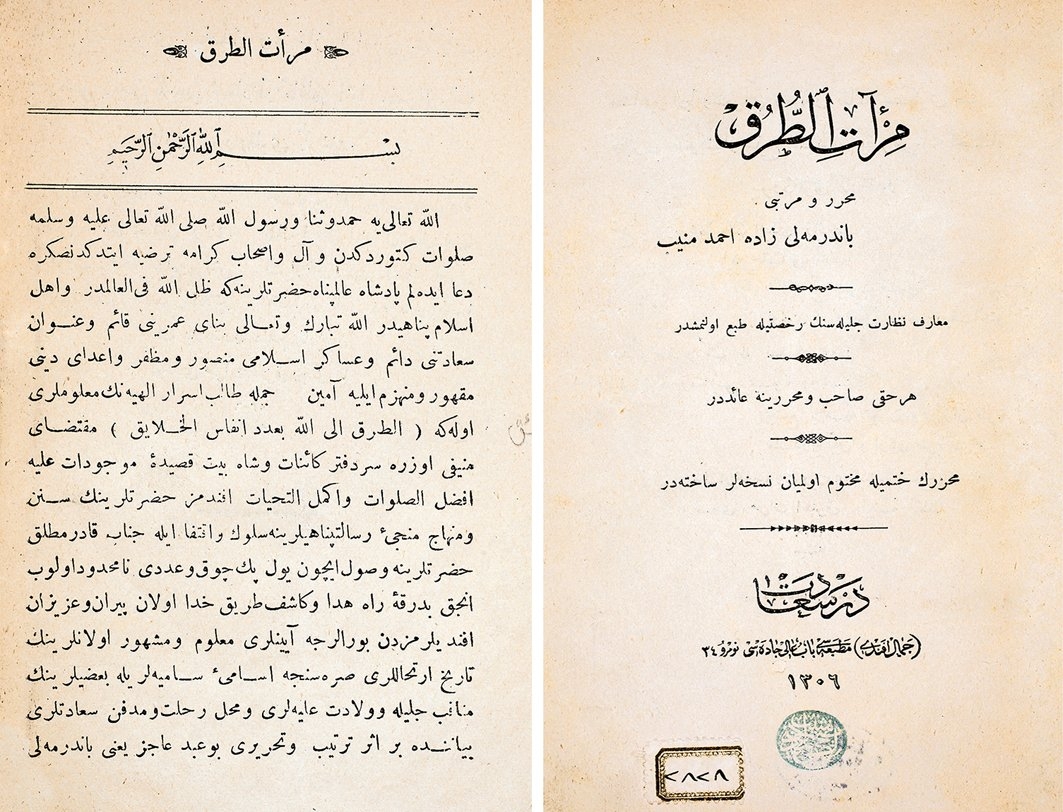 مرأت الطرق
بسم الله الرحمن الرحيم
الله تعالى يه حمدوثنا ورسول الله صلى الله تعالى عليه وسلمه
صلوات كتوردكدن و آل واصحاب كرامه ترضيه ايتدكدنصكره
دعا ايده لم پادشاه عالمپناه حضرتلرينه كه ظل الله فى العالمدر واهل
اسلام پناهيدر الله تبارك وتعالى بناى عمرينى قائم وعنوان
سعادتنى دائم وعساكر اسلامى منصور ومظفر واعداى دينى
مقهور ومنهزم ايليه آمين جمله طالب اسرار الهيه نك معلوملرى
اوله كه ( الطرق الى الله بعدد انفاس الخلايق ) مقتضاى
منيفى اوزره سردفتر كائنات وشاه بيت قصيدهٔ موجودات عليه
افضل الصلوات واكمل التحيات افندمز حضرتلرينك سنن
ومنهاج منجىٔ رسالتپناهيلرينه سلوك واقتفا ايله جناب قادر مطلق
حضرتلرينه وصول ايچون يول پك چوق وعددى نامحدود اولوب
انجق بدرقهٔ راه هدا وكاشف طريق خدا اولان پيران وعزيزان
افنديلرمزدن بورالرجه آيينلرى معلوم ومشهور اولانلرينك
تاريخ ارتحاللرى صره سنجه اسامىٔ ساميه لريله بعضيلرينك
مناقب جليله وولادت عليه لرى ومحل رحلت ومدفن سعادتلرى
بياننده بر اثر ترتيب وتحريرى بوعبد عاجز يعنى باندرمه لى
مِرْآتِ الطُّرُق
محرر و مرتبى
باندرمه لى زاده احمد منيب
معارف نظارت جليله سنك رخصتيله طبع اولنمشدر
هرحقى صاحب ومحررينه عائددر
محررك ختميله مختوم اولميان نسخه لر ساخته در
در سعادت
(جمال افندى) مطبعه سى باب عالى جاده سى نومرو ٣٤
١٣٠٦
٧٨٧٨